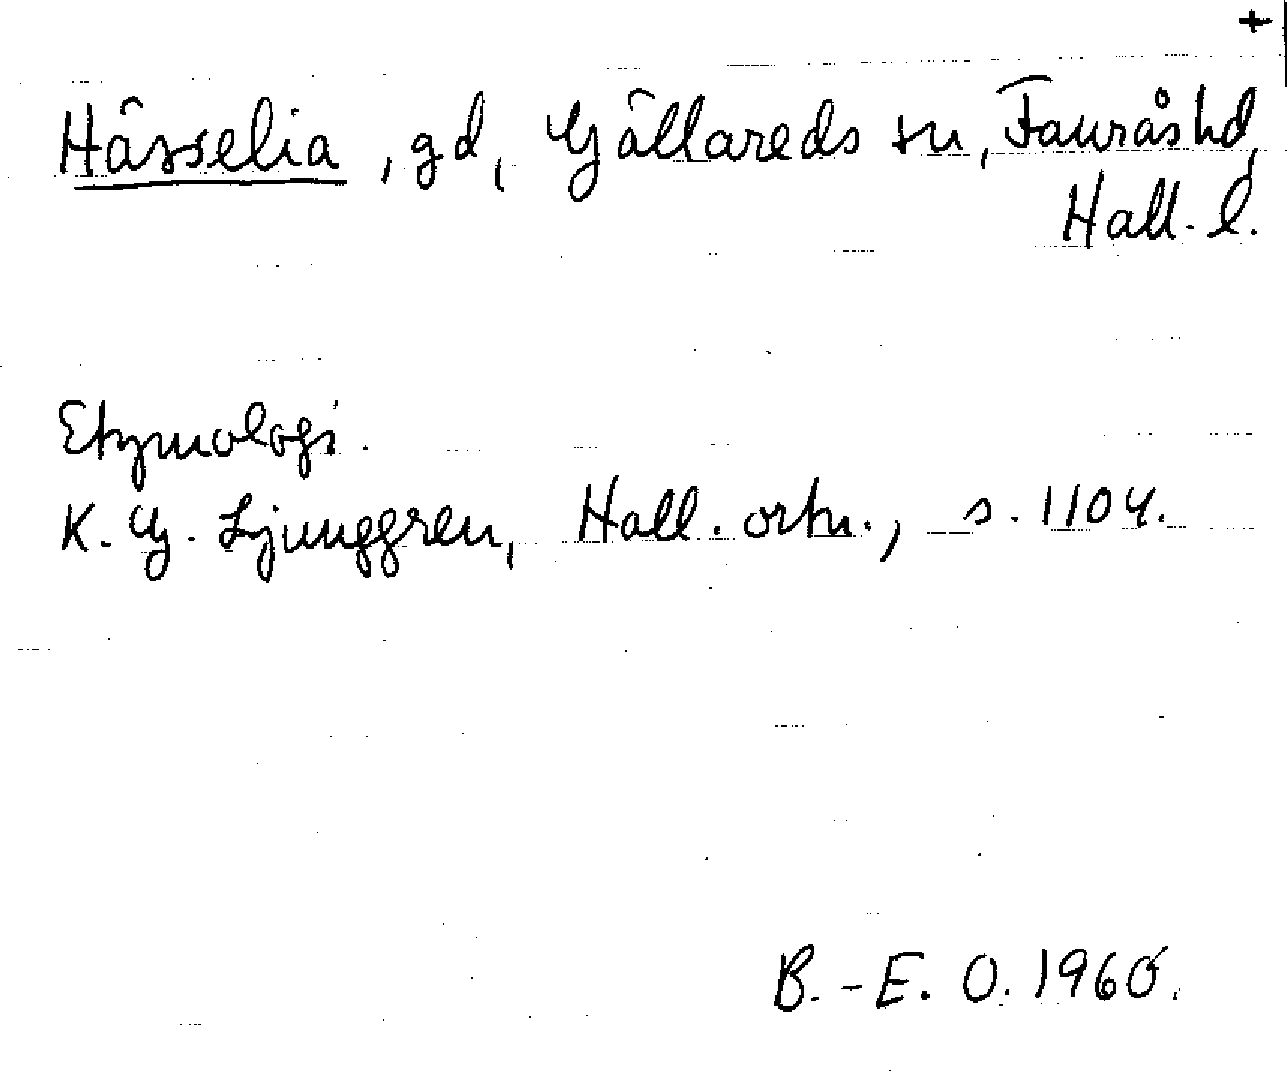 +
Hässelia, gd, Gällareds sn, Fauråshd,
Hall. l.
Etymologi.
K. G. Ljunggren, Hall. ortn., s. 1104.
B.-E. O. 1960.